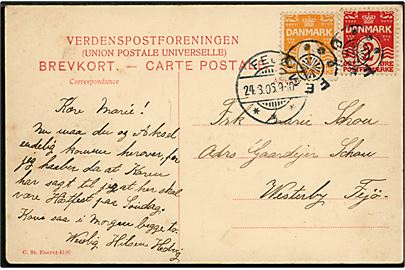 VERDENSPOSTFORENINGEN
(UNION POSTALE UNIVERSELLE)
BREVKORT. — CARTE POSTALE
Correspondance
DANMARK
DANMARK
2
FEJØ
24.8.05.9-10
Kære Marie!
Nu maa du og Aksel
endelig komme herover, for
jeg haaber da at Karen
har sagt til jer at her skal
være Høstfest paa Søndag.
Kom saa i Morgen begge to.
Venlig Hilsen Hedvig
Frk Marie Schou
Adrs Gaardejer Schou
Vesterby Fejø.
C. St. Eneret